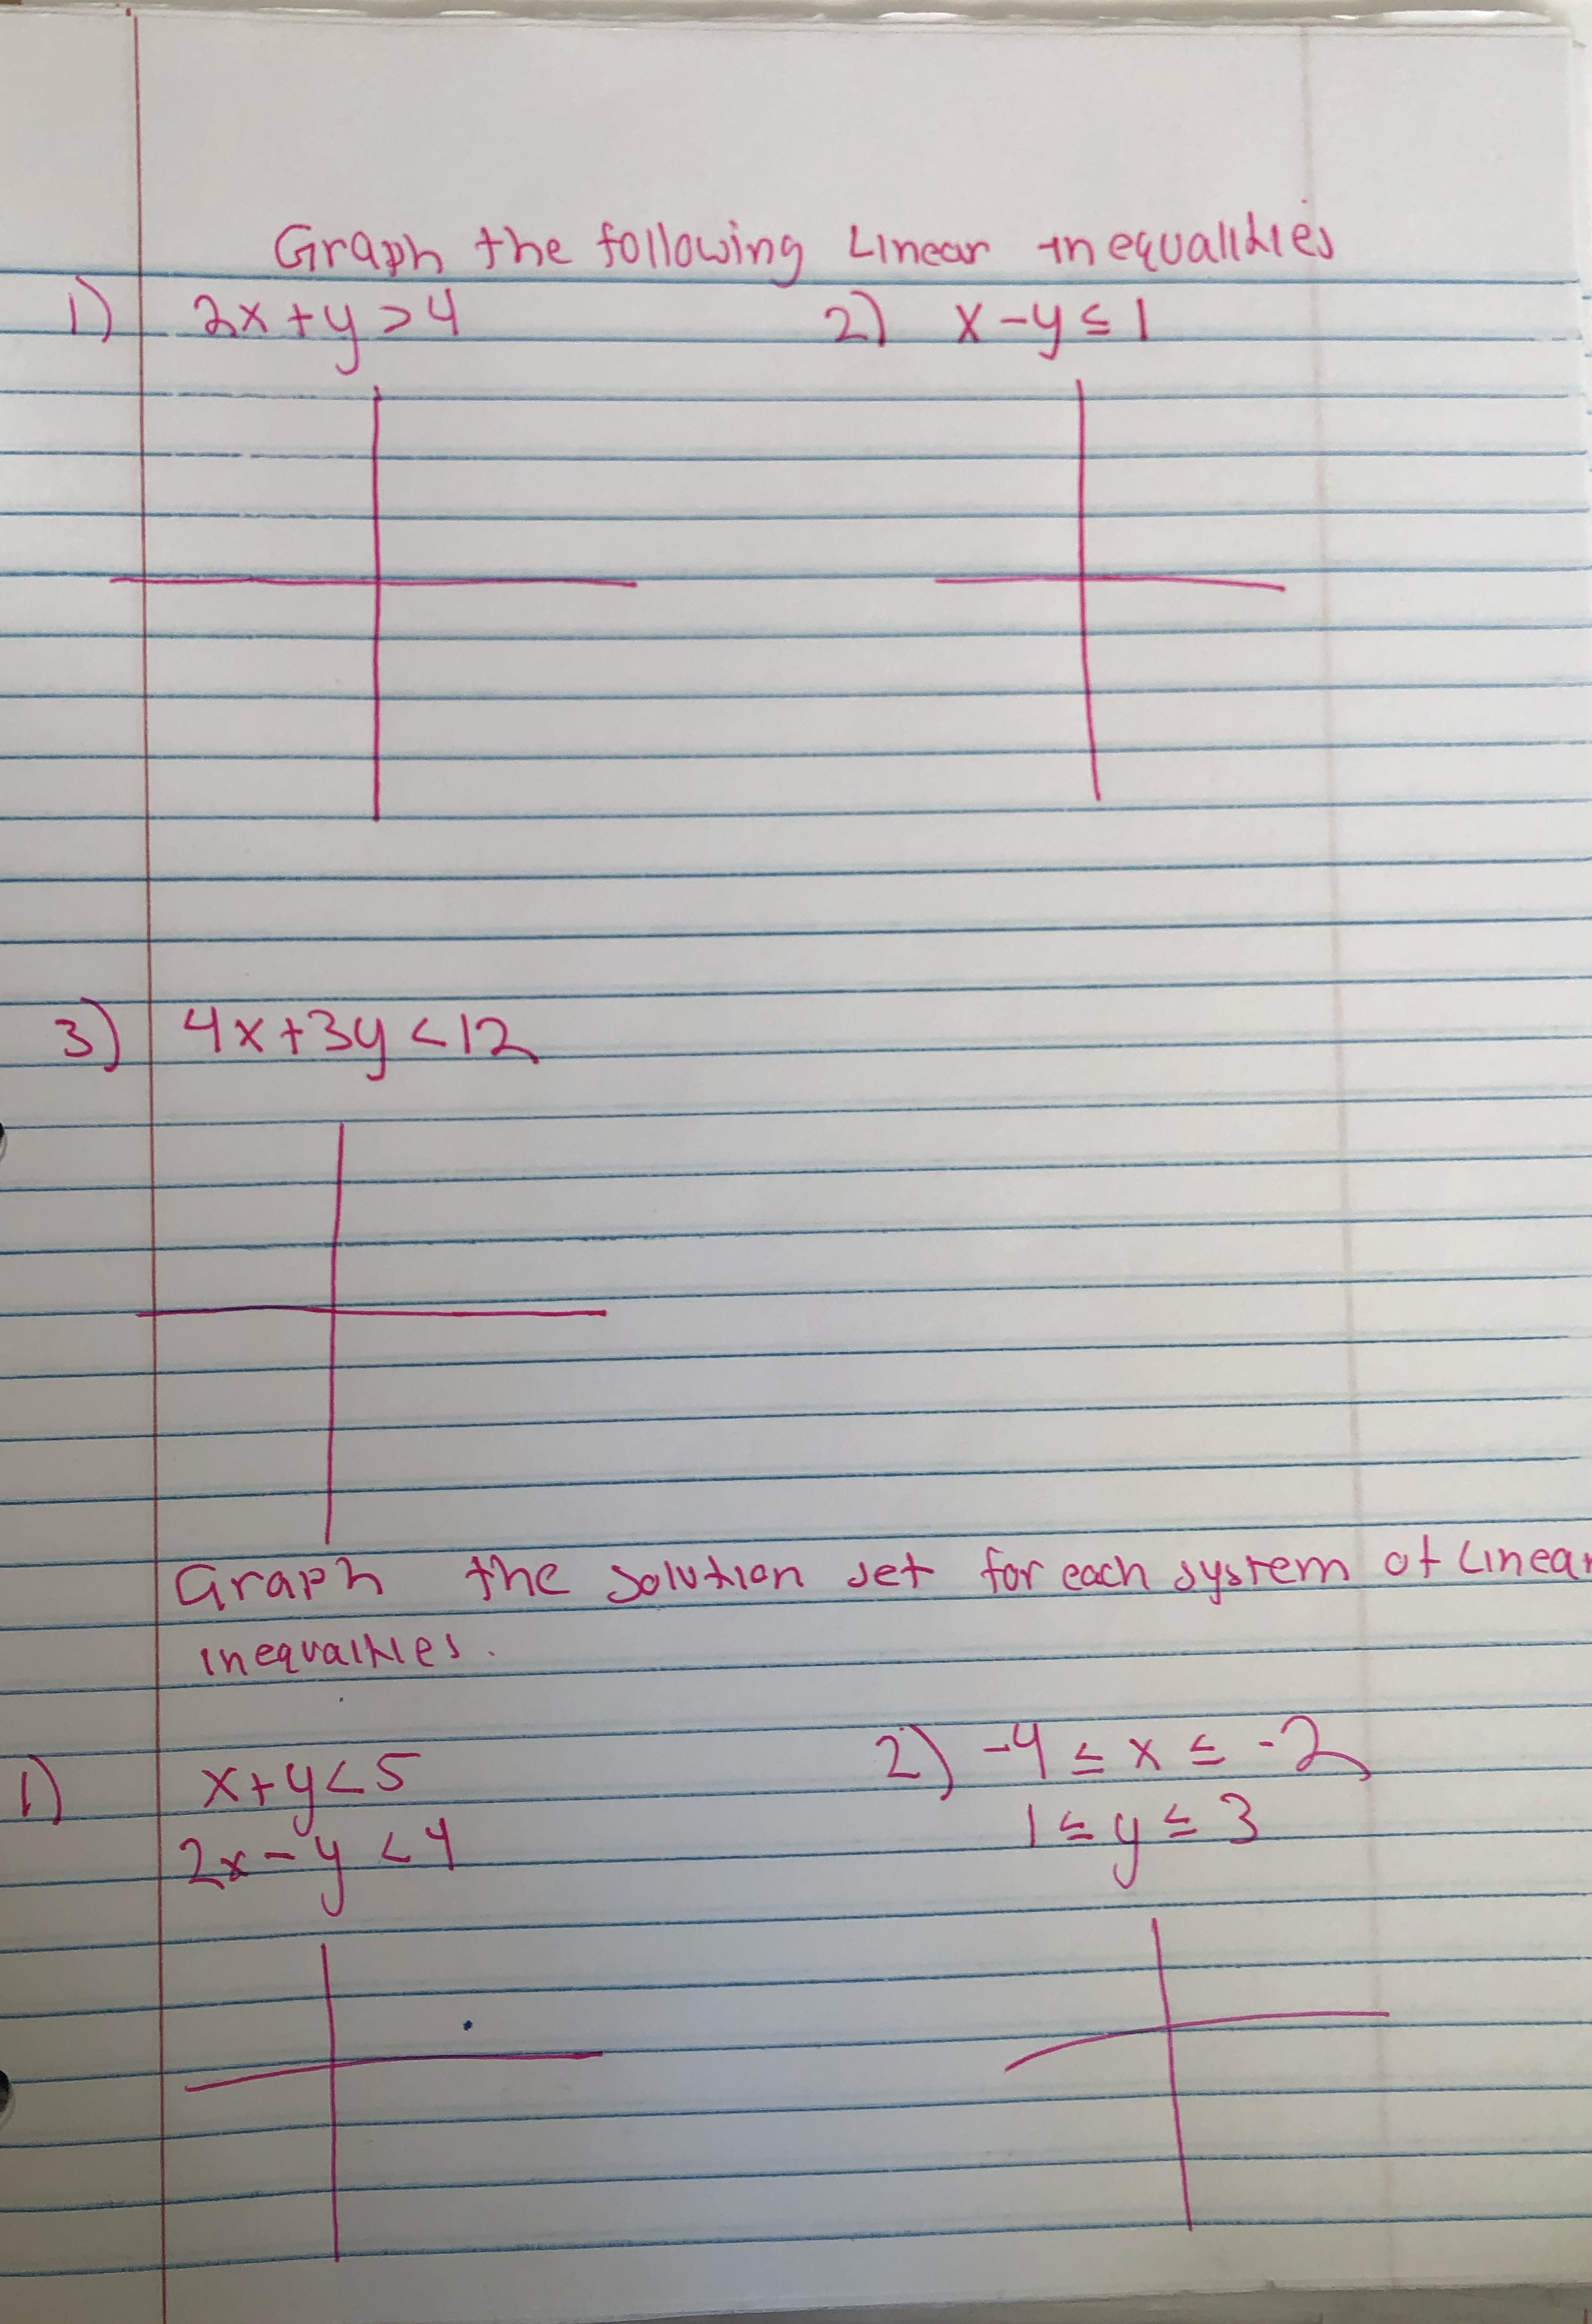 Graph the following Linear Inequalities
1) 2x+y>4 2) x-y≤1
3) 4x+3y<12
Graph the solution set for each system of Linear
inequalities.
1) x+y<5 2) -4≤x≤-2
2x-y<4 1≤y≤3